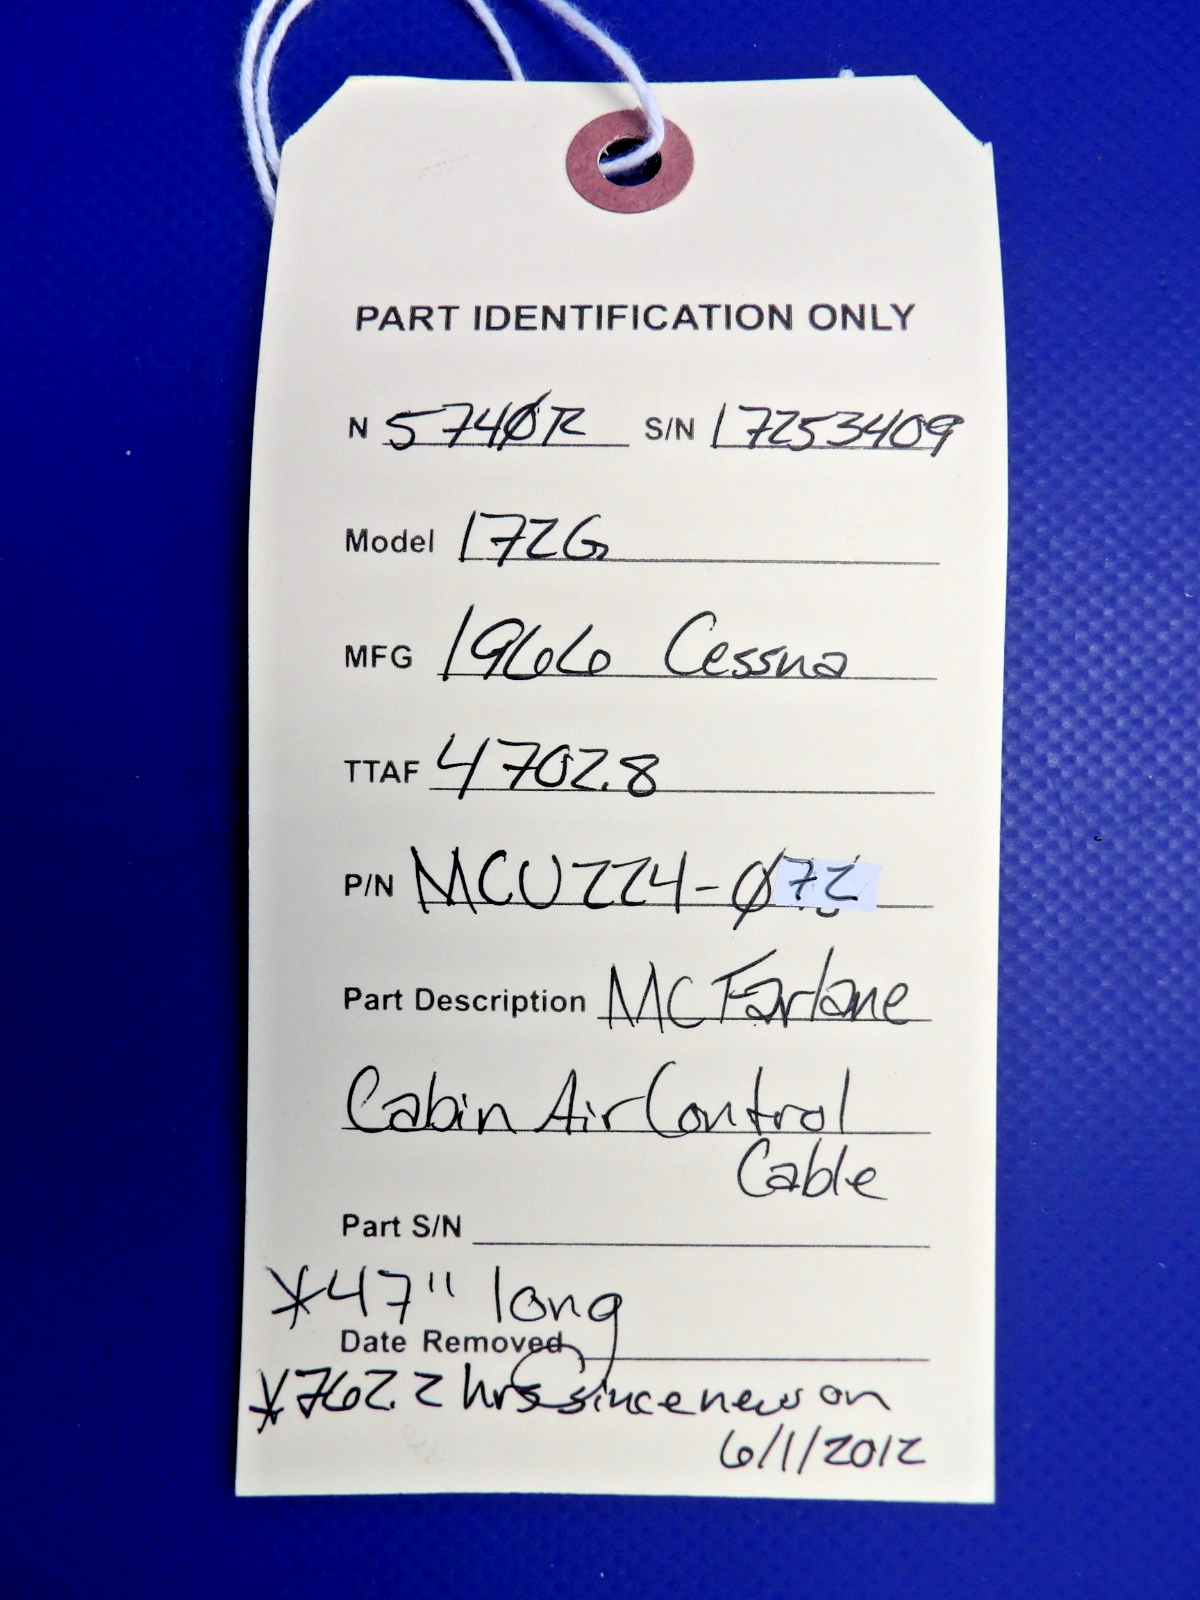 PART IDENTIFICATION ONLY
N 5740R S/N 17253409
Model 172G
MFG 1966 Cessna
TTAF 4702.8
P/N MCU224-072
Part Description McFarlane
Cabin Air Control
Cable
Part S/N
*47" long
Date Removed
*762.2 hrs since new on
6/1/2012